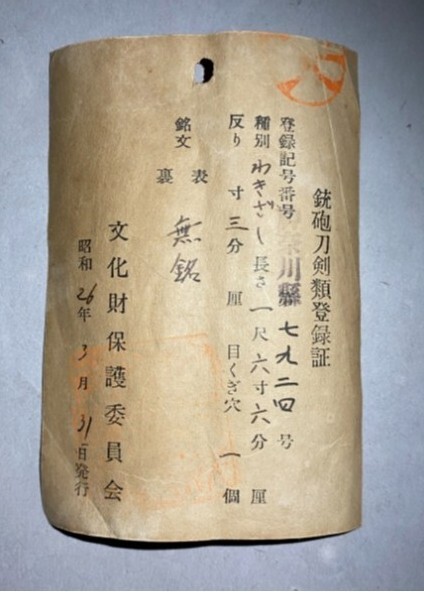 銃砲刀剣類登録証
登録記号番号 奈川縣 七九二四 号
種別 わきざし 長さ 一尺六寸六分 厘
反り 寸三分 厘 目くぎ穴 一 個
銘文 表 無銘
裏
文化財保護委員会
昭和26年3月31日発行